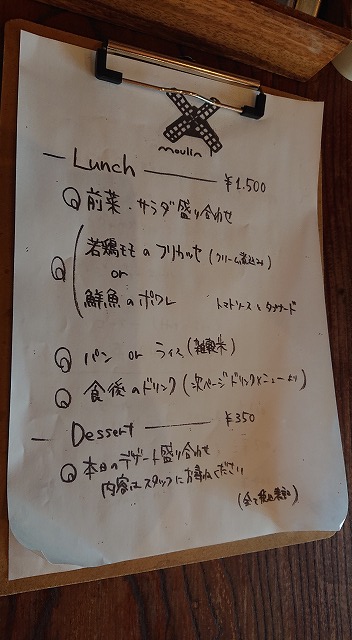 moulin
Lunch ¥1.500
前菜・サラダ盛り合わせ
若鶏モモのフリカッセ (クリーム煮込み)
or
鮮魚のポワレ トマトソースとタプナード
パン or ライス (雑穀米)
食後のドリンク (次ページドリンクメニューより)
Dessert ¥350
本日のデザート盛り合わせ
内容はスタッフにお尋ねください
(全て税込表示)